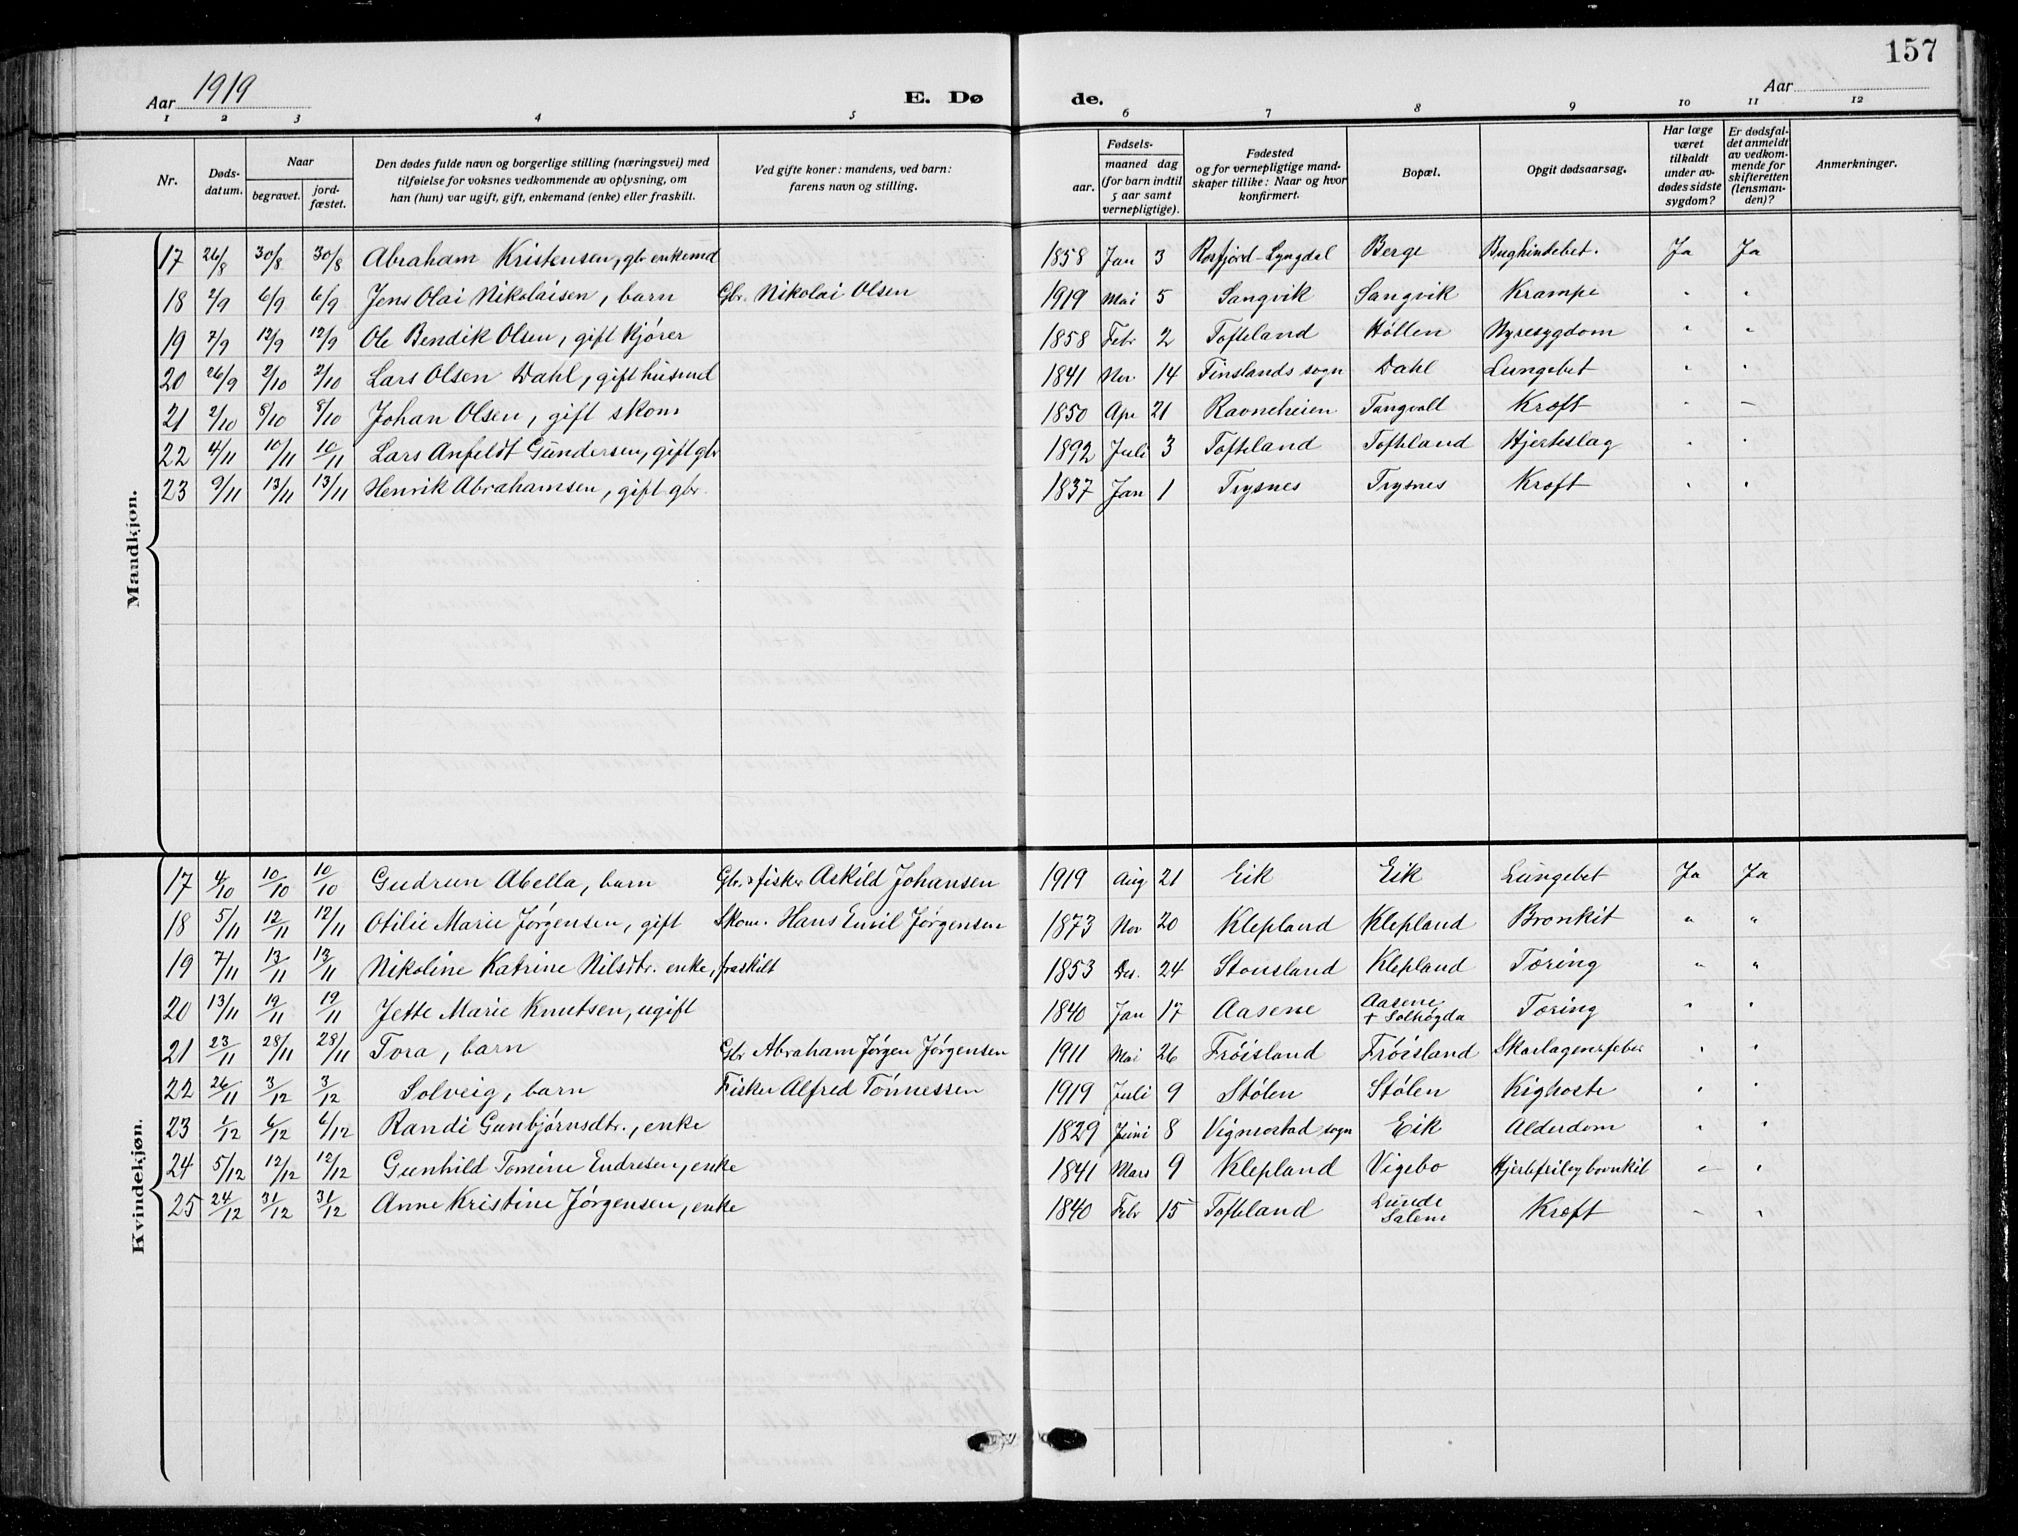 157
Aar 1919
E. Dø de.
Aar
1 2 3 4 5 6 7 8 9 10 11 12
Nr.
Døds-datum.
Naar
begravet.
jord-fæstet.
Den dødes fulde navn og borgerlige stilling (næringsvei) med tilføielse for voksnes vedkommende av oplysning, om han (hun) var ugift, gift, enkemand (enke) eller fraskilt.
Ved gifte koner: mandens, ved barn: farens navn og stilling.
Fødsels-
aar.
maaned dag (for barn indtil 5 aar samt vernepligtige).
Fødested og for vernepligtige mandskaper tillike: Naar og hvor konfirmert.
Bopæl.
Opgit dødsaarsag.
Har læge været tilkaldt under avdødes sidste sygdom?
Er dødsfaldet anmeldt av vedkommende for skifteretten (lensmanden)?
Anmerkninger.
Mandkjøn.
17 26/8 30/8 30/8 Abraham Kristensen, gbr enkemd 1858 Jan 3 Rosfjord-Lyngdal Berge Bughindebet. Ja Ja
18 2/9 6/9 6/9 Jens Olai Nikolaisen, barn Gbr. Nikolai Olsen 1919 Mai 5 Sangvik Sangvik Krampe " "
19 7/9 12/9 12/9 Ole Bendik Olsen, gift kjører 1858 Febr 2 Tofteland Höllen Nyresygdom " "
20 26/9 2/10 2/10 Lars Olsen Dahl, gift husmd 1841 Nov. 14 Finslands sogn Dahl Lungebet " "
21 2/10 8/10 8/10 Johan Olsen, gift skom 1850 Apr 21 Ravneheien Tangvall Kræft " –
22 4/11 10/11 10/11 Lars Anfeldt Gundersen, gift gbr 1892 Juli 3 Tofteland Tofteland Hjerteslag " "
23 9/11 13/11 13/11 Henrik Abrahamsen, gift gbr. 1837 Jan 1 Trysnes Trysnes Kræft " "
Kvindekjøn.
17 4/10 10/10 10/10 Gudrun Abella, barn Gbr. & fisker Askild Johansen 1919 Aug 21 Eik Eik Lungebet Ja Ja
18 5/11 12/11 12/11 Otilie Marie Jørgensen, gift Skom. Hans Emil Jørgensen 1873 Nov 20 Klepland Klepland Bronkit " "
19 7/11 13/11 13/11 Nikoline Katrine Nilsdtr. enke, fraskilt 1853 Des. 24 Stousland Klepland Tæring " "
20 13/11 19/11 19/11 Jette Marie Knutsen, ugift 1840 Jan 17 Aasene Aasene + Solhøgda Tæring " "
21 23/11 28/11 28/11 Tora, barn Gbr Abraham Jørgen Jørgensen 1911 Mai 26 Frøisland Frøisland Skarlagensfeber " "
22 26/11 3/12 3/12 Solveig, barn Fisker Alfred Tönnessen 1919 Juli 9 Stølen Stølen Kighoste " "
23 1/12 6/12 6/12 Randi Gunbjørnsdtr., enke 1829 Juni 8 Vigmostad sogn Eik Alderdom " "
24 5/12 12/12 12/12 Gunhild Tomine Endresen, enke 1841 Mars 9 Klepland Vigebo Hjertefeil og bronkit " "
25 24/12 31/12 31/12 Anne Kristine Jørgensen, enke 1840 Febr 15 Tofteland Lunde Salem Kræft " "